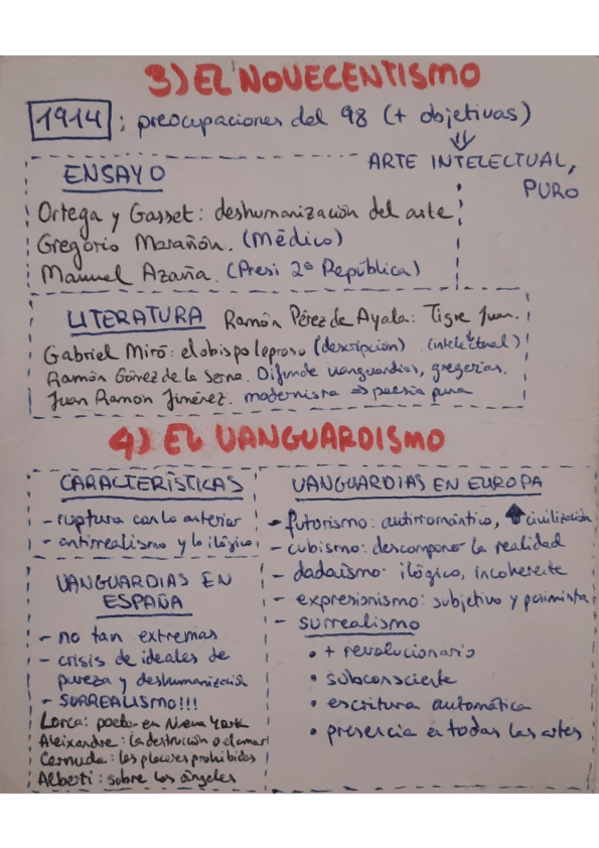 3) EL NOVECENTISMO
1914 : preocupaciones del 98 (+ objetivas)
⇓
ARTE INTELECTUAL, PURO
ENSAYO
Ortega y Gasset: deshumanización del arte
Gregorio Marañón. (Médico)
Manuel Azaña. (Presi 2º República)
LITERATURA Ramón Pérez de Ayala: Tigre Juan.
Gabriel Miró: el obispo leproso (descripción) (intelectual)
Ramón Gómez de la Serna. Difunde vanguardias, greguerías.
Juan Ramón Jiménez. modernista => poesía pura
4) EL VANGUARDISMO
CARACTERÍSTICAS
- ruptura con lo anterior
- antirrealismo y lo ilógico
VANGUARDIAS EN
ESPAÑA
- no tan extremas
- crisis de ideales de
pureza y deshumanización
- SURREALISMO!!!
Lorca: poeta en Nueva York
Aleixandre: la destrucción o el amar
Cernuda: los placeres prohibidos
Alberti: sobre los ángeles
VANGUARDIAS EN EUROPA
- futurismo: antirromántico, ↑ civilización
- cubismo: descomponer la realidad
- dadaísmo: ilógico, incoherente
- expresionismo: subjetivo y pesimista
- surrealismo
• + revolucionario
• subconsciente
• escritura automática
• presencia en todas las artes